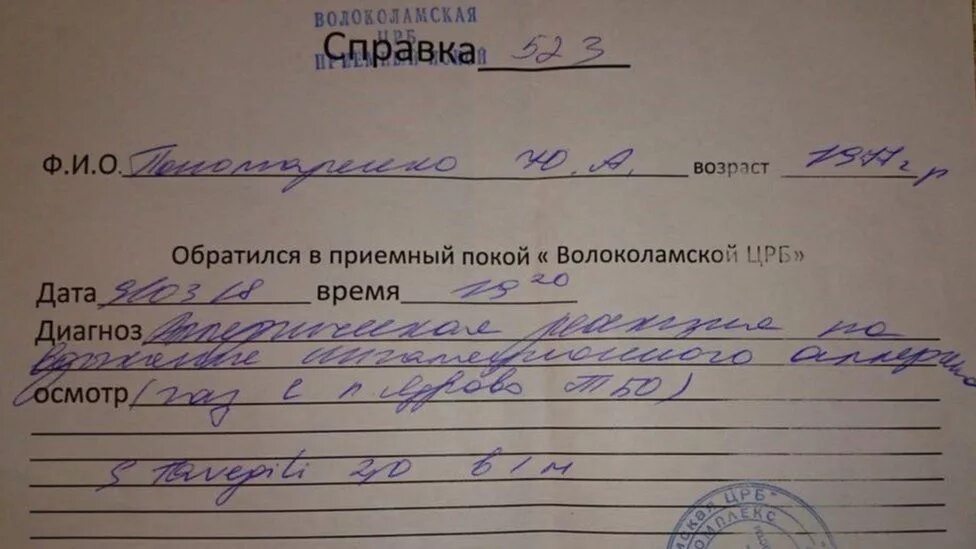 ВОЛОКОЛАМСКАЯ
ЦРБ
ПРИЕМНЫЙ ПОКОЙ
Справка 523
Ф.И.О. Пономаренко Ю. А. возраст 1977 г р
Обратился в приемный покой « Волоколамской ЦРБ»
Дата 03 18 время 19 20
Диагноз Аллергическая реакция на
вдыхание ингаляционного
осмотр (газ с п. Ядрово ТБО)
S Tavegili 2,0 в/м
ская ЦРБ"
КОМПЛЕКС